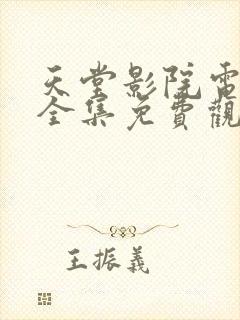 天堂影院電
全集免費觀
王振義